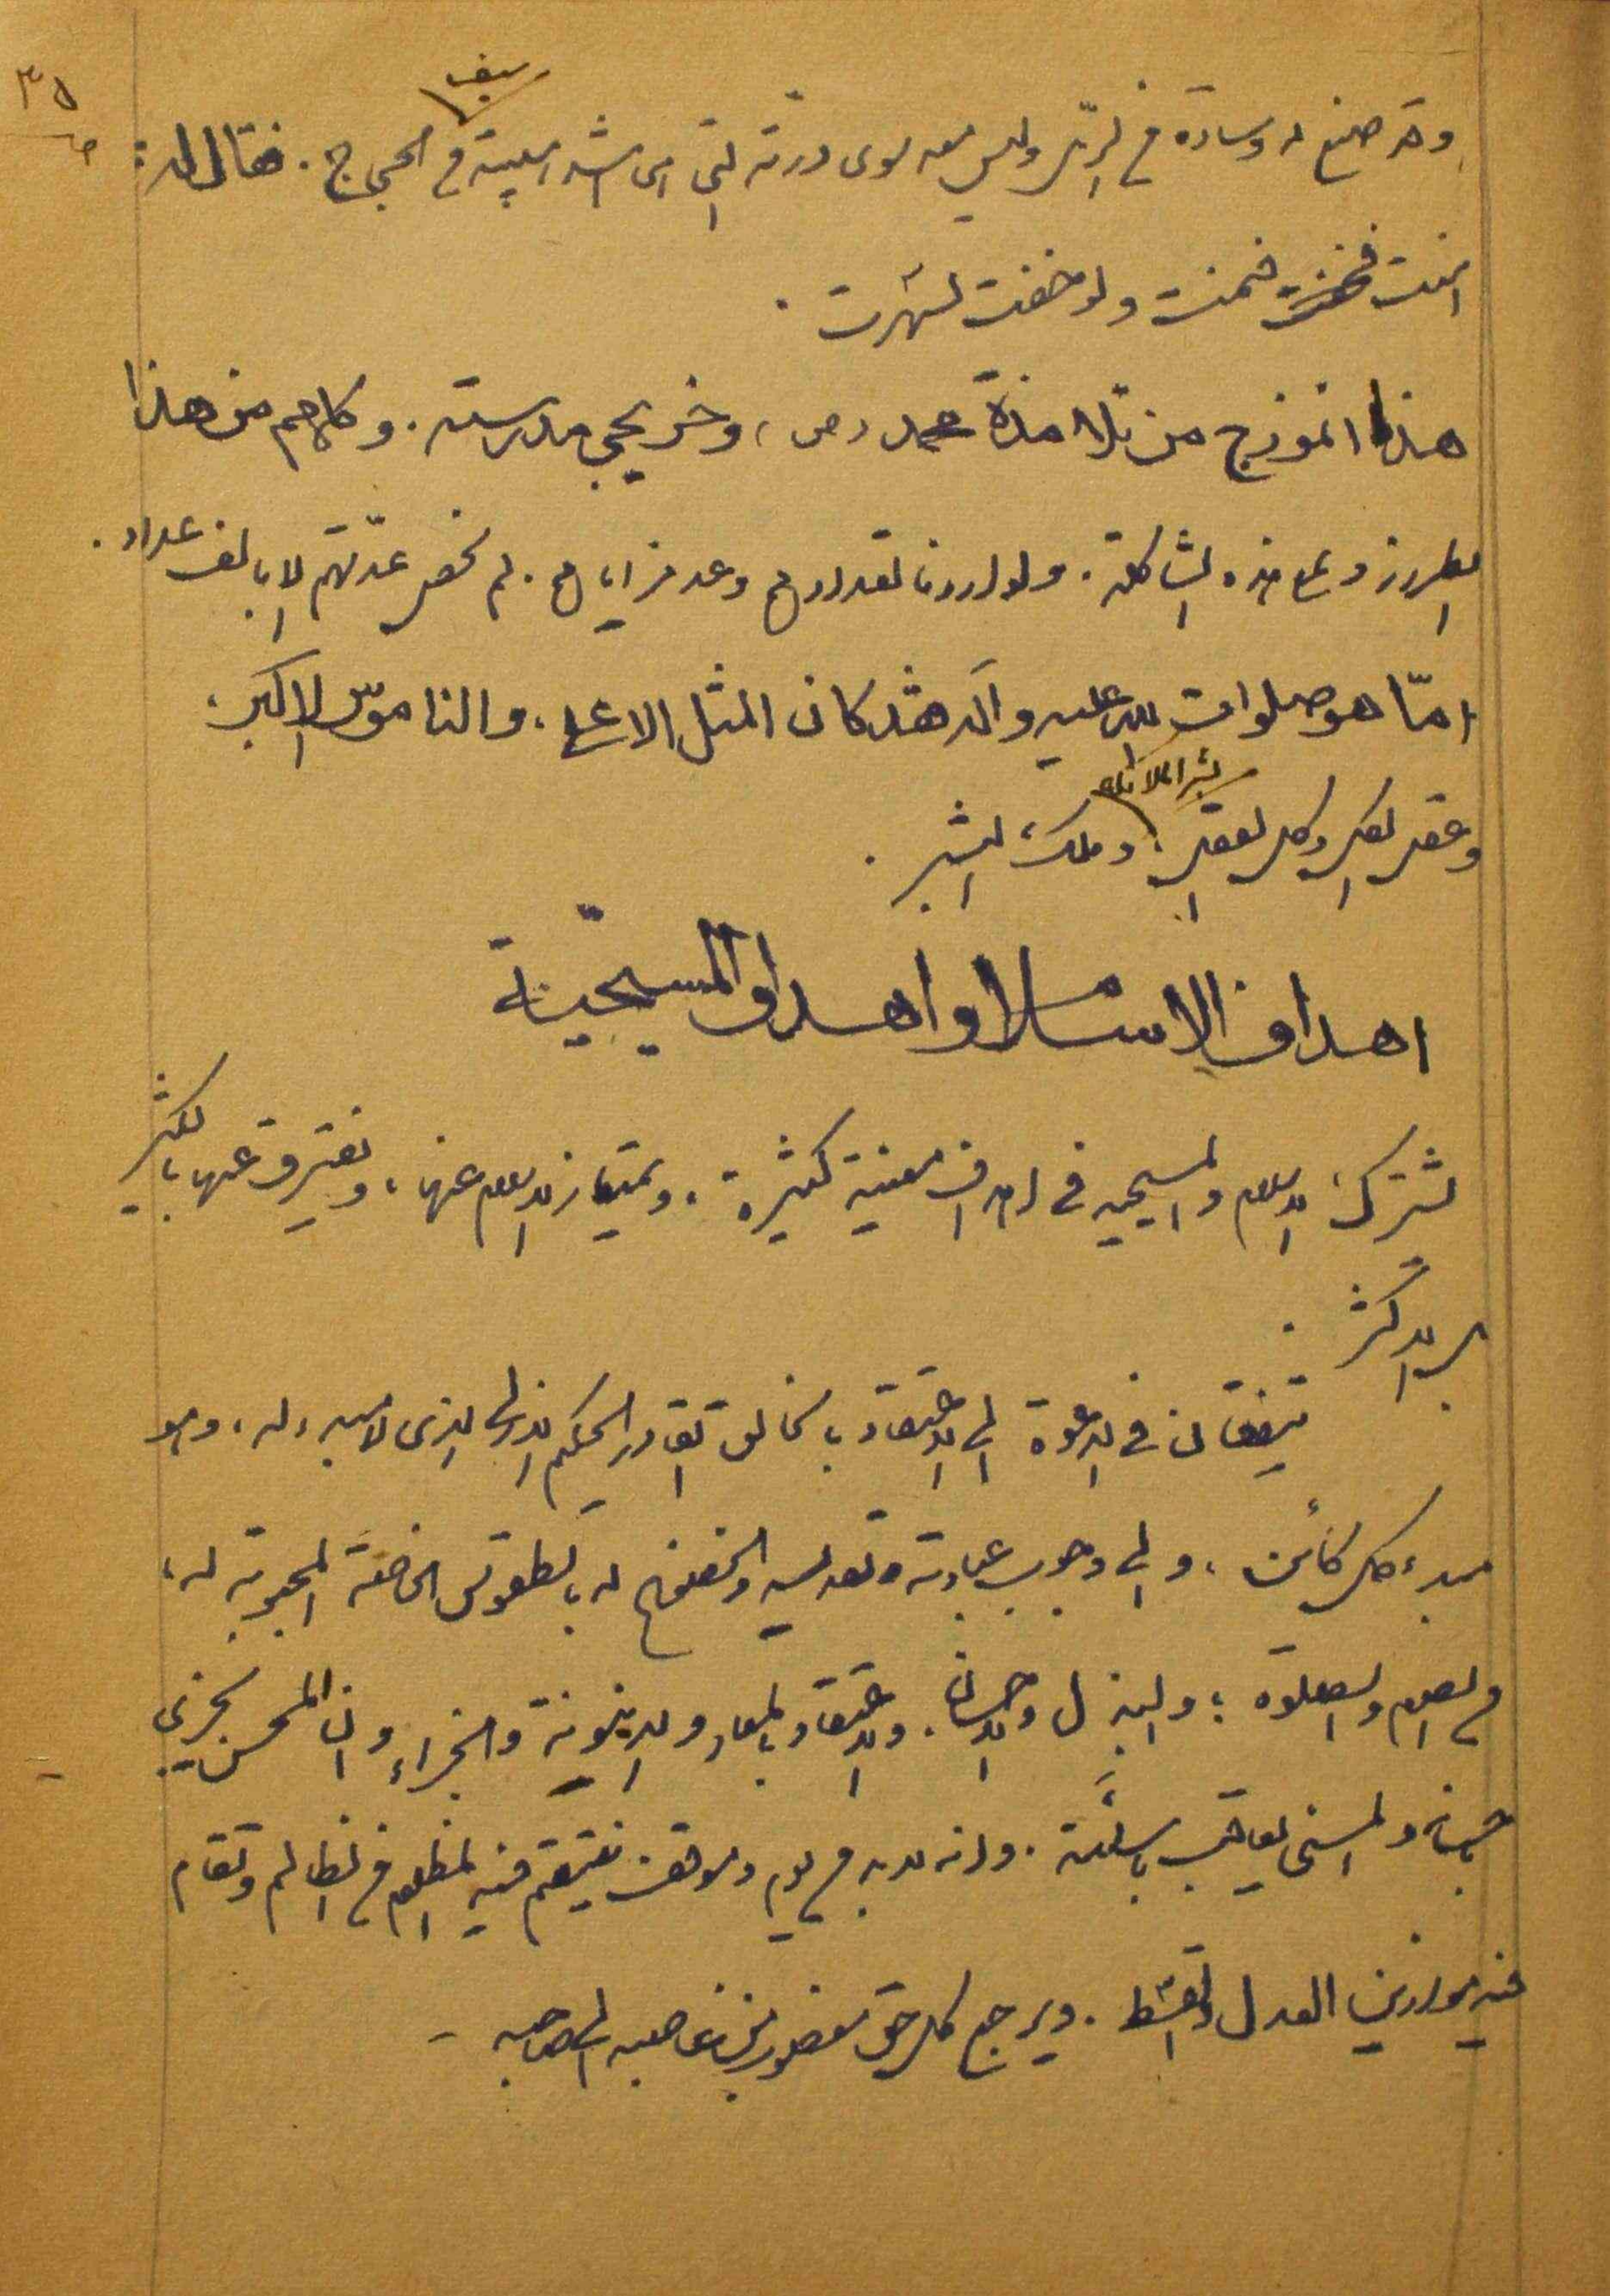 ٣٥
وقد صنع له وسادة من الرمل وليس معه سوى درته التي هي اشد هيبة من سيف الحجاج . فقال له :
امنت فنمت ولو خفت لسهرت .
هذا انموذج من تلامذة محمد (ص) وخريجي مدرسته . وكلهم من هذا
الطراز وعلى هذه الشاكلة . ولو اردنا تعدادهم وعد مزاياهم . لم نحصر عدّتهم الا بالف عداد .
امّا هو صلوات الله عليه وآله فقد كان المثل الاعلى ، والناموس الاكبر ،
وعقل الكل وكل العقل ، بشر الملائكة وملك البشر .
اهداف الاسلام واهداف المسيحيّة
تشترك الاسلام والمسيحية في اهداف معينة كثيرة . ويمتاز الاسلام عنها ، ويفترق عنها بالكثير
بل الاكثر .
يتفقان في الدعوة الى الاعتقاد بالخالق القادر الحكيم الازلي الذي لا مبدء له ، وهو
مبدء كل كائن ، والى وجوب عبادته وتقديسه والخضوع له بالطقوس الخاصة المحبوبة له ،
من الصوم والصلوة ؛ والبذل والاحسان . والاعتقاد بالمعاد والدينونة والجزاء وان المحسن يجزى
باحسانه والمسئ يعاقب باسائته . وانه لابد من يوم وموقف ينتقم فيه المظلوم من الظالم وتقام
فيه موازين العدل والقسط . ويرجع كل حق مغصوب من غاصبه الى صاحبه –